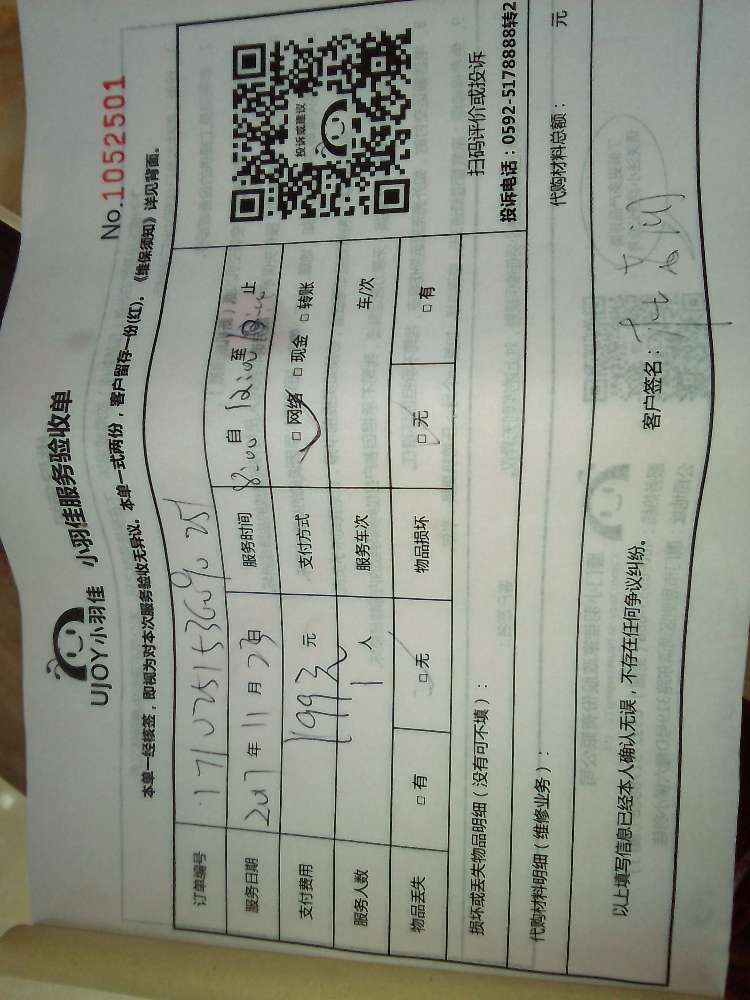 UJOY小羽佳 小羽佳服务验收单
No.1052501
本单一经核签，即视为对本次服务验收无异议。本单一式两份，客户留存一份(红)。《维保须知》详见背面。
订单编号
服务日期 2017 年 11 月 23 日 服务时间 8:00 自 12:00 至 止
支付费用 199元 元 支付方式 □ 网络 □ 现金 □ 转账
服务人数 1 人 服务车次 车/次
物品丢失 □ 有 □ 无 物品损坏 □ 无 □ 有
投诉或建议
扫码评价或投诉
投诉电话：0592-5178888转2
损坏或丢失物品明细（没有可不填）：
代购材料明细（维修业务）： 代购材料总额： 元
以上填写信息已经本人确认无误，不存在任何争议纠纷。
客户签名：